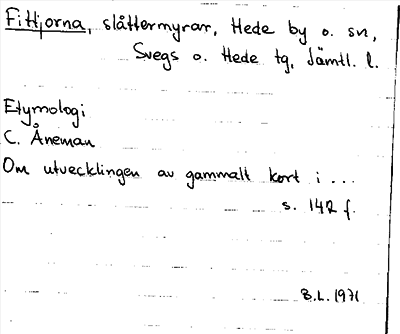 Fittjorna, slåttermyrar, Hede by o. sn,
Svegs o. Hede tg, Jämtl. l.
Etymologi
C. Åneman
Om utvecklingen av gammalt kort i ...
s. 142 f.
B.L. 1971